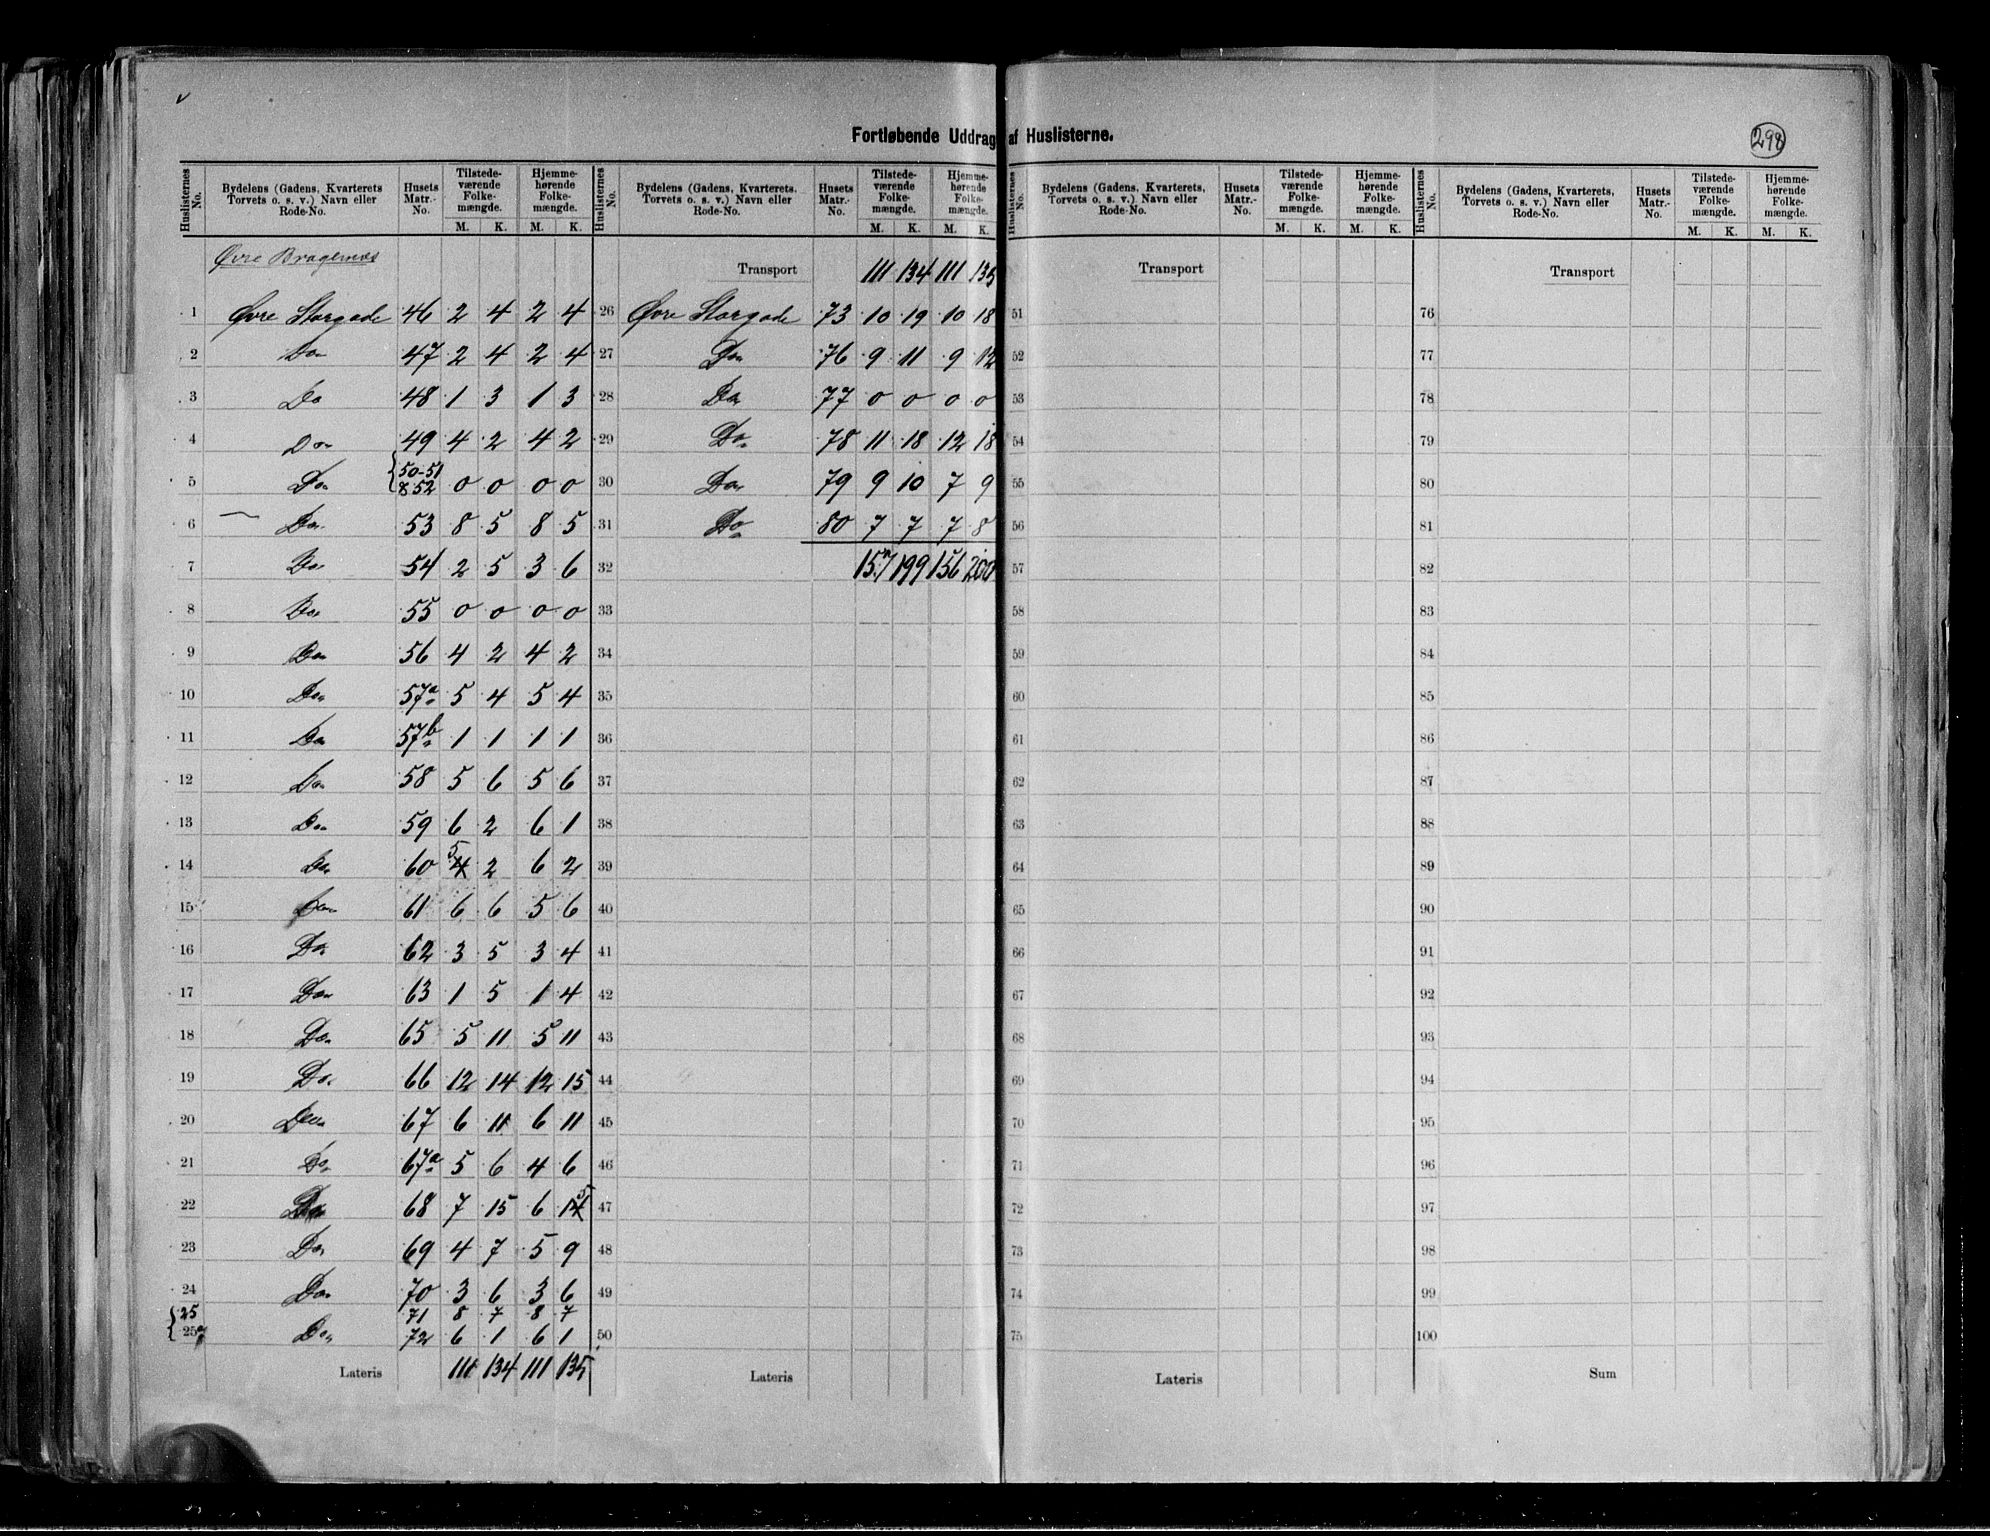 Fortløbende Uddrag af Huslisterne.
298
Huslisternes No. | Bydelens (Gadens, Kvarterets Torvets o. s. v.) Navn eller Rode-No. | Husets Matr.-No. | Tilstedeværende Folkemængde. M. K. | Hjemmehørende Folkemængde. M. K.
Øvre Bragernæs
1 Øvre Storgade 46 2 4 2 4
2 Do 47 2 4 2 4
3 Do 48 1 3 1 3
4 Do 49 4 2 4 2
5 Do 50-51 & 52 0 0 0 0
6 Do 53 8 5 8 5
7 Do 54 2 5 3 6
8 Do 55 0 0 0 0
9 Do 56 4 2 4 2
10 Do 57a 5 4 5 4
11 Do 57b 1 1 1 1
12 Do 58 5 6 5 6
13 Do 59 6 2 6 1
14 Do 60 5 2 6 2
15 Do 61 6 6 5 6
16 Do 62 3 5 3 4
17 Do 63 1 5 1 4
18 Do 65 5 11 5 11
19 Do 66 12 14 12 15
20 Do 67 6 11 6 11
21 Do 67a 5 6 4 6
22 Do 68 7 15 6 15
23 Do 69 4 7 5 9
24 Do 70 3 6 3 6
25 71 8 7 8 7
25a Do 72 6 1 6 1
Lateris 111 134 111 135
Huslisternes No. | Bydelens (Gadens, Kvarterets, Torvets o. s. v.) Navn eller Rode-No. | Husets Matr.-No. | Tilstedeværende Folkemængde. M. K. | Hjemmehørende Folkemængde. M. K.
Transport 111 134 111 135
26 Øvre Storgade 73 10 19 10 18
27 Do 76 9 11 9 12
28 Do 77 0 0 0 0
29 Do 78 11 18 12 18
30 Do 79 9 10 7 9
31 Do 80 7 7 7 8
32 157 199 156 200
33
34
35
36
37
38
39
40
41
42
43
44
45
46
47
48
49
50
Lateris
Huslisternes No. | Bydelens (Gadens, Kvarterets, Torvets o. s. v.) Navn eller Rode-No. | Husets Matr.-No. | Tilstedeværende Folkemængde. M. K. | Hjemmehørende Folkemængde. M. K.
Transport
51
52
53
54
55
56
57
58
59
60
61
62
63
64
65
66
67
68
69
70
71
72
73
74
75
Lateris
Huslisternes No. | Bydelens (Gadens, Kvarterets, Torvets o. s. v.) Navn eller Rode-No. | Husets Matr.-No. | Tilstedeværende Folkemængde. M. K. | Hjemmehørende Folkemængde. M. K.
Transport
76
77
78
79
80
81
82
83
84
85
86
87
88
89
90
91
92
93
94
95
96
97
98
99
100
Sum